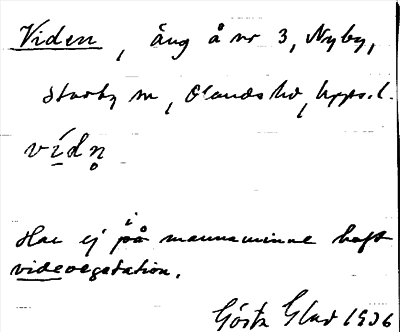 Viden, äng å nr 3, Nyby,
Stavby sn, Olands hd, Upps. l.
vídn̥
Har ej i mannaminne haft
videvegetation.
Gösta Glad 1936